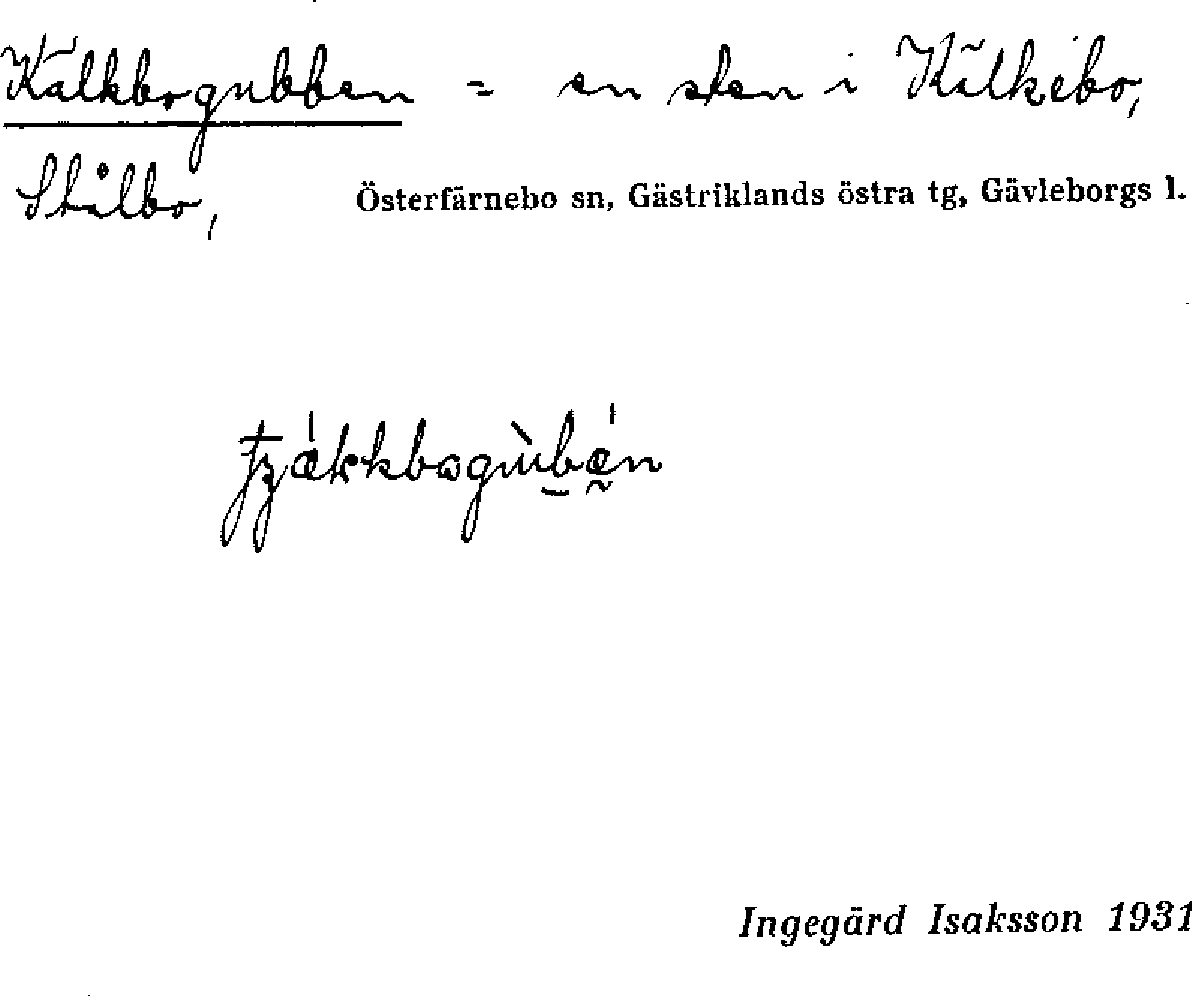 Kälkbogubben = en sten i Kälkebo,
Stålbo, Österfärnebo sn, Gästriklands östra tg, Gävleborgs l.
Ingegärd Isaksson 1931